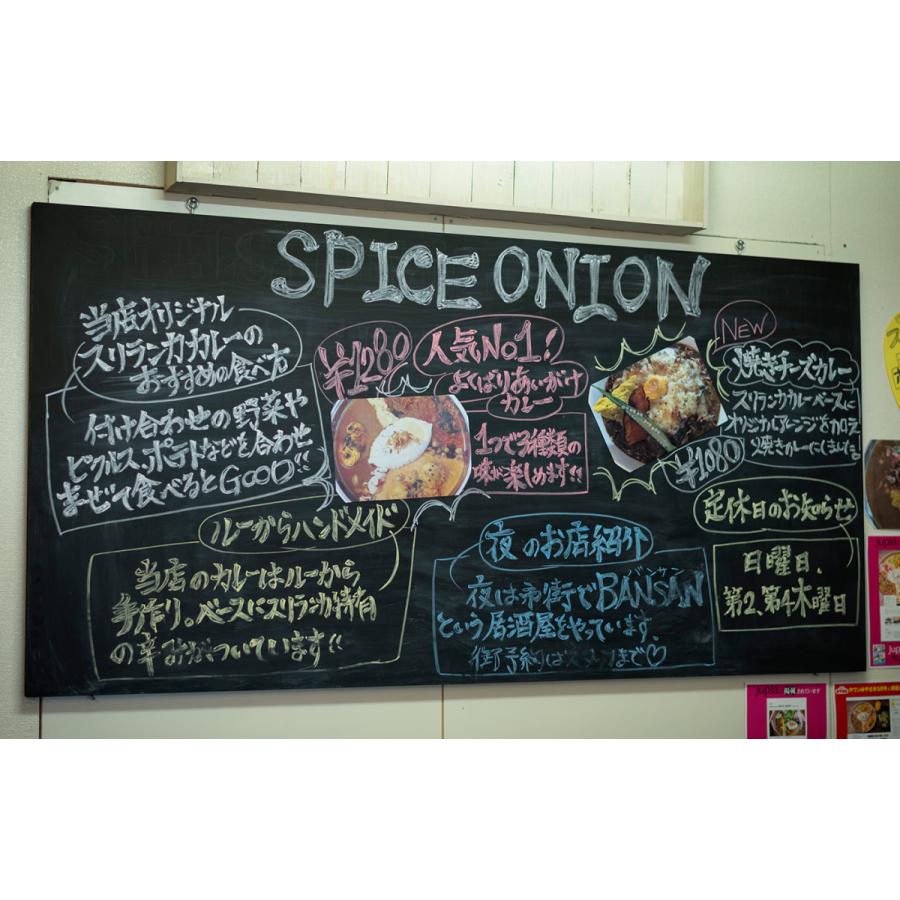 SPICE ONION
当店オリジナル
スリランカカレーの
おすすめの食べ方
付け合わせの野菜や
ピクルス、ポテトなどを合わせ
まぜて食べるとGOOD!!
¥1280
人気No1!
よくばりあいがけ
カレー
1つで3種類の
味が楽しめます!!
NEW
焼きチーズカレー
スリランカカレーベースに
オリジナルアレンジを加え
焼きカレーにしました
¥1080
ルーからハンドメイド
当店のカレーはルーから
手作り。ベースにスリランカ特有
の辛みがついています!!
夜のお店紹介
バンサン
夜は市街でBANSAN
という居酒屋をやっています、
御予約はスタッフまで♡
定休日のお知らせ
日曜日、
第2、第4木曜日
jupia
掲載されています